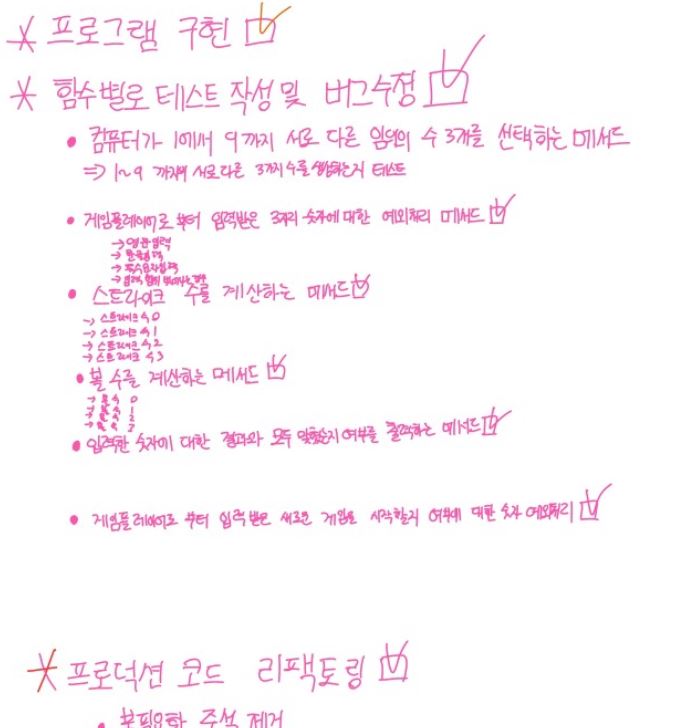 * 프로그램 구현
* 함수별로 테스트 작성 및 버그수정
• 컴퓨터가 1에서 9까지 서로 다른 임의의 수 3개를 선택하는 메서드
=> 1~9 까지의 서로다른 3가지 수를 생성하는지 테스트
• 게임플레이어로 부터 입력받은 3자리 숫자에 대한 예외처리 메서드
→ 영문입력
• 스트라이크 수를 계산하는 메서드
→ 스트라이크 수 0
→ 스트라이크 수 1
→ 스트라이크 수 2
→ 스트라이크 수 3
• 볼 수를 계산하는 메서드
→ 볼 수 0
→ 볼 수 1
→ 볼 수 2
→ 볼 수
• 입력한 숫자에 대한 결과와 모두 맞췄는지 여부를 출력하는 메서드
• 게임플레이어로 부터 입력받은 새로운 게임을 시작할지 여부에 대한 숫자 예외처리
* 프로덕션 코드 리팩토링
• 불필요한 주석 제거